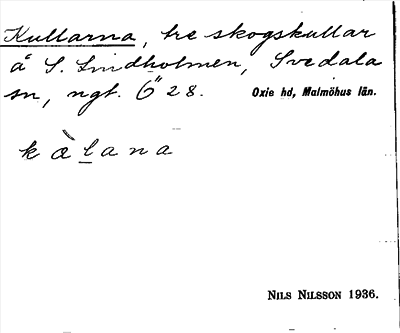 Kullarna, tre skogskullar
å S. Lindholmen, Svedala
sn, ngt. 6"28. Oxie hd, Malmöhus län.
kæ̀lana
NILS NILSSON 1936.